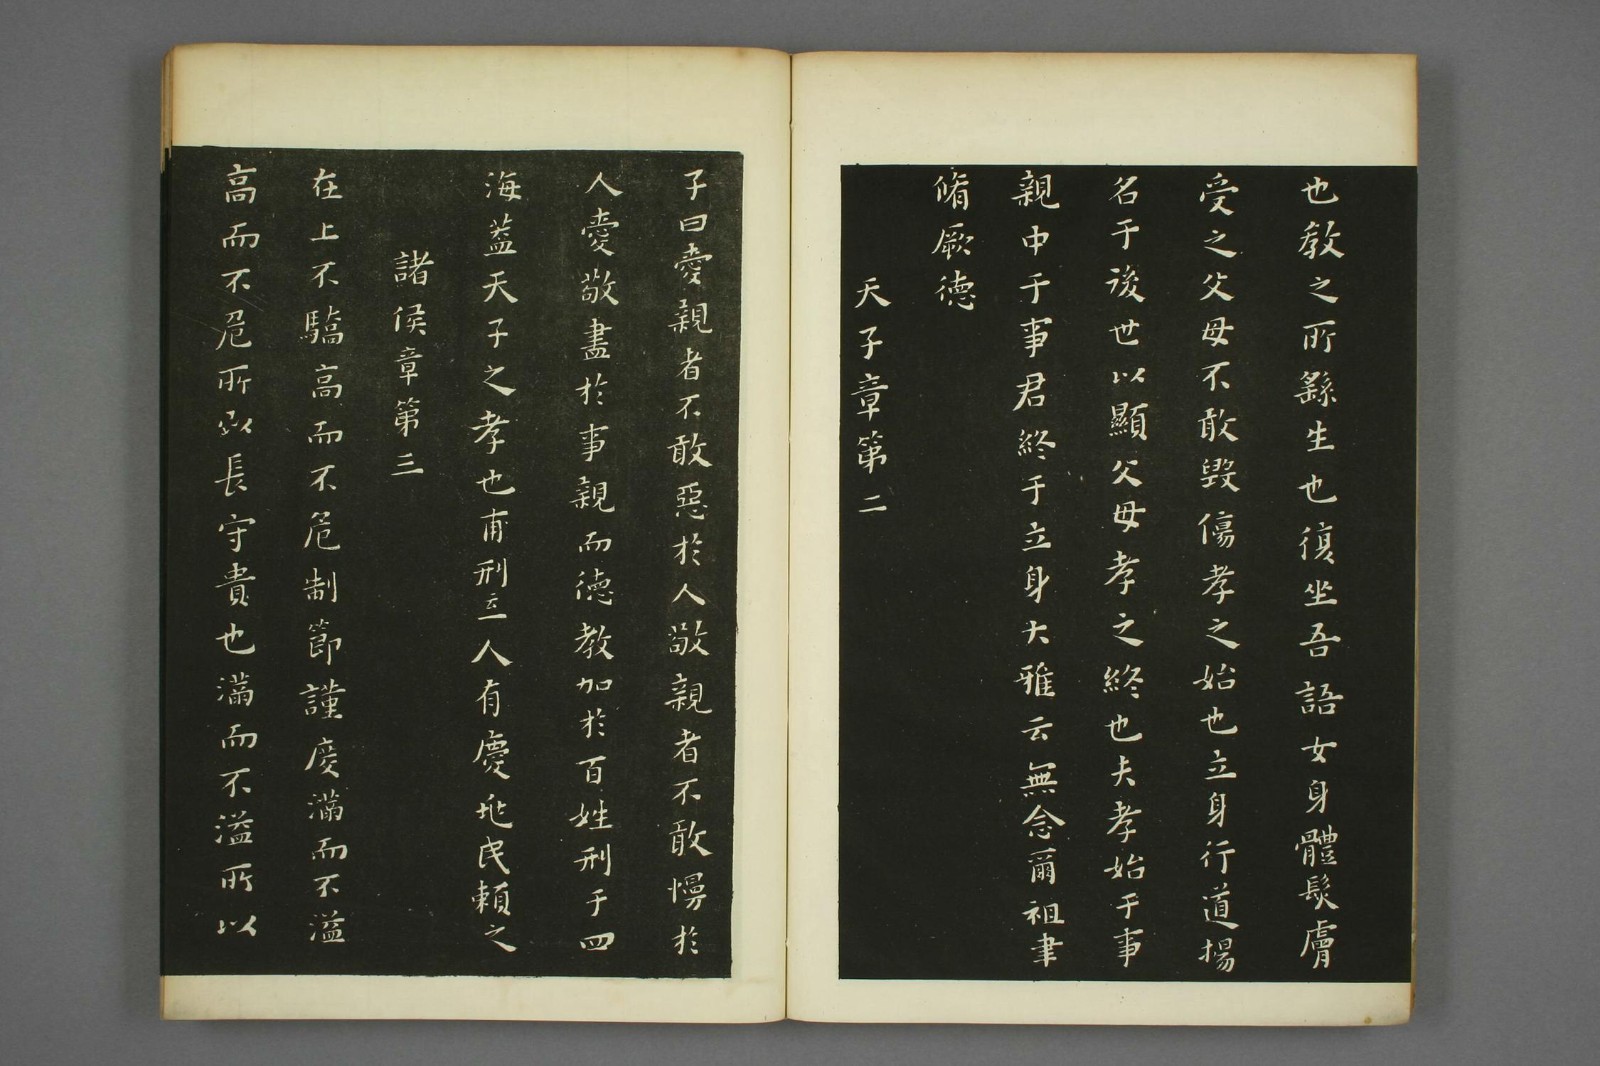 也教之所繇生也復坐吾語女身體髮膚
受之父母不敢毀傷孝之始也立身行道揚
名于後世以顯父母孝之終也夫孝始于事
親中于事君終于立身大雅云無念爾祖聿
脩厥德
天子章第二
子曰愛親者不敢惡於人敬親者不敢慢於
人愛敬盡於事親而德教加於百姓刑于四
海蓋天子之孝也甫刑云一人有慶兆民賴之
諸侯章第三
在上不驕高而不危制節謹度滿而不溢
高而不危所以長守貴也滿而不溢所以